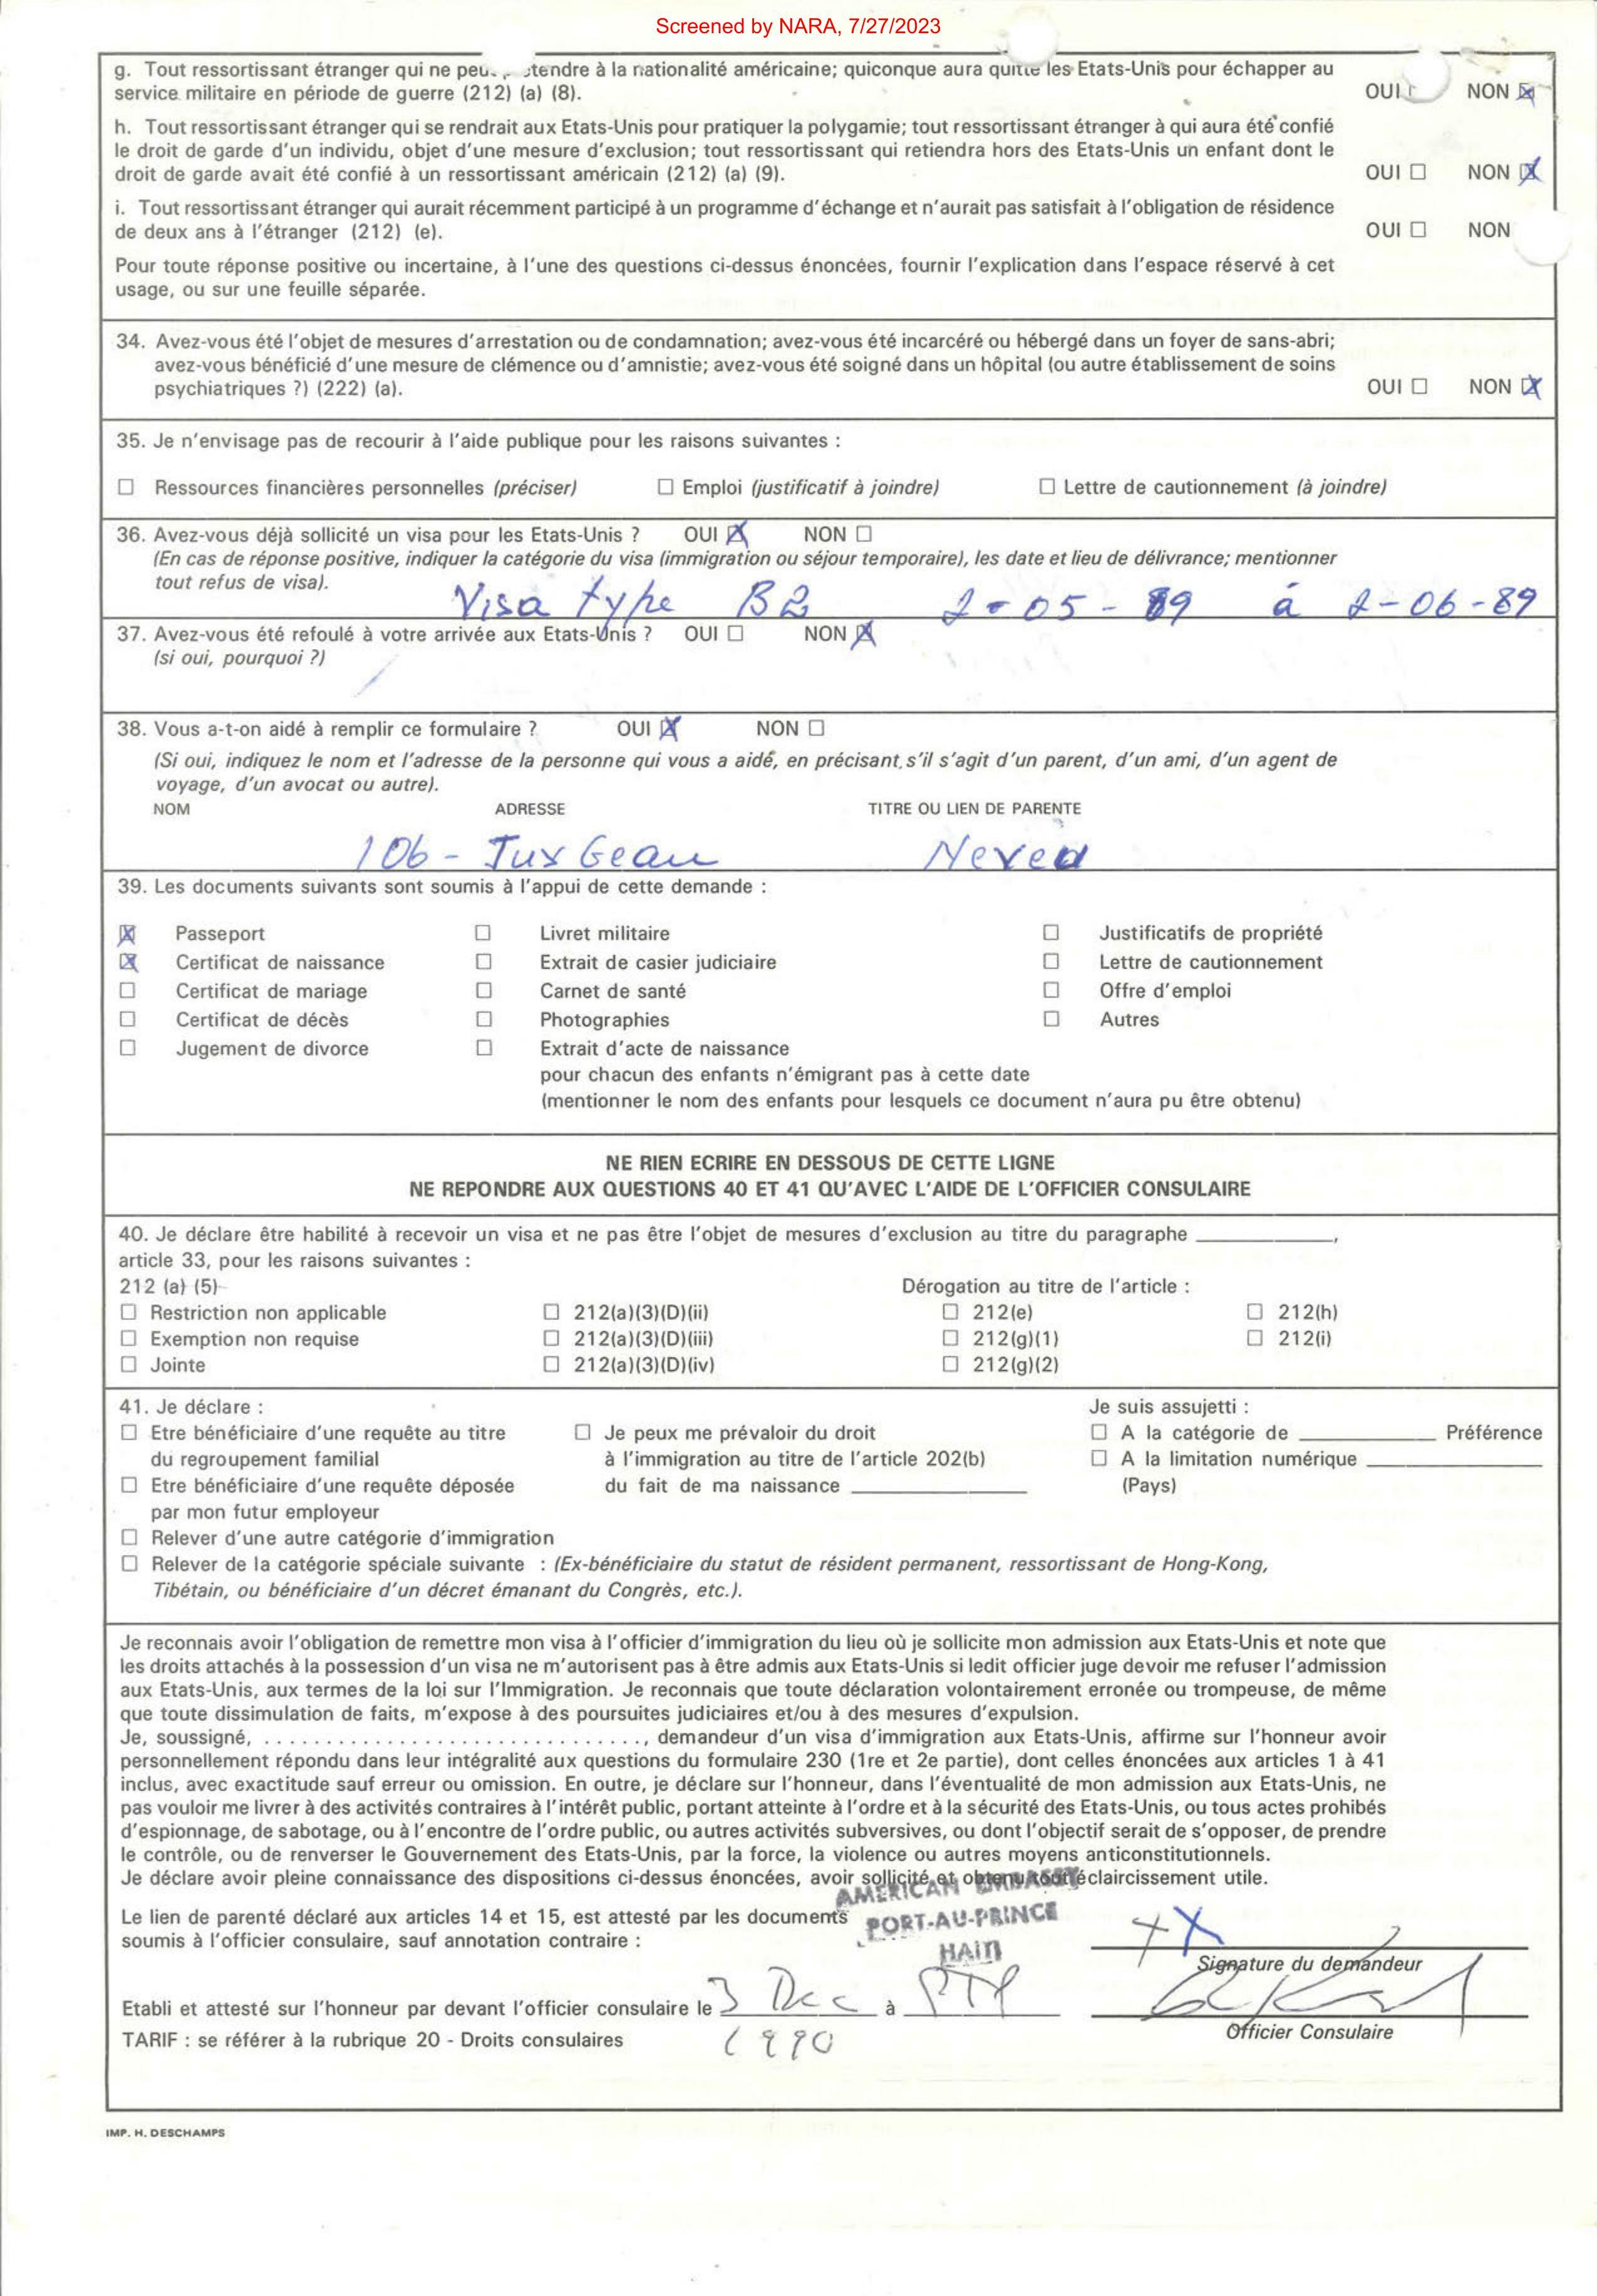 Screened by NARA, 7/27/2023
g. Tout ressortissant étranger qui ne à la nationalité américaine; quiconque aura quitté les Etats-Unis pour échapper au
service militaire en période de guerre (212) (a) (8). OUI NON ☒
h. Tout ressortissant étranger qui se rendrait aux Etats-Unis pour pratiquer la polygamie; tout ressortissant étranger à qui aura été confié
le droit de garde d'un individu, objet d'une mesure d'exclusion; tout ressortissant qui retiendra hors des Etats-Unis un enfant dont le
droit de garde avait été confié à un ressortissant américain (212) (a) (9). OUI ☐ NON ☒
i. Tout ressortissant étranger qui aurait récemment participé à un programme d'échange et n'aurait pas satisfait à l'obligation de résidence
de deux ans à l'étranger (212) (e). OUI ☐ NON
Pour toute réponse positive ou incertaine, à l'une des questions ci-dessus énoncées, fournir l'explication dans l'espace réservé à cet
usage, ou sur une feuille séparée.
34. Avez-vous été l'objet de mesures d'arrestation ou de condamnation; avez-vous été incarcéré ou hébergé dans un foyer de sans-abri;
avez-vous bénéficié d'une mesure de clémence ou d'amnistie; avez-vous été soigné dans un hôpital (ou autre établissement de soins
psychiatriques ?) (222) (a). OUI ☐ NON ☒
35. Je n'envisage pas de recourir à l'aide publique pour les raisons suivantes :
☐ Ressources financières personnelles (préciser) ☐ Emploi (justificatif à joindre) ☐ Lettre de cautionnement (à joindre)
36. Avez-vous déjà sollicité un visa pour les Etats-Unis ? OUI ☒ NON ☐
(En cas de réponse positive, indiquer la catégorie du visa (immigration ou séjour temporaire), les date et lieu de délivrance; mentionner
tout refus de visa).
Visa type B2 2-05-89 à 2-06-89
37. Avez-vous été refoulé à votre arrivée aux Etats-Unis ? OUI ☐ NON ☒
(si oui, pourquoi ?)
38. Vous a-t-on aidé à remplir ce formulaire ? OUI ☒ NON ☐
(Si oui, indiquez le nom et l'adresse de la personne qui vous a aidé, en précisant s'il s'agit d'un parent, d'un ami, d'un agent de
voyage, d'un avocat ou autre).
NOM ADRESSE TITRE OU LIEN DE PARENTE
106 -
39. Les documents suivants sont soumis à l'appui de cette demande :
☒ Passeport ☐ Livret militaire ☐ Justificatifs de propriété
☒ Certificat de naissance ☐ Extrait de casier judiciaire ☐ Lettre de cautionnement
☐ Certificat de mariage ☐ Carnet de santé ☐ Offre d'emploi
☐ Certificat de décès ☐ Photographies ☐ Autres
☐ Jugement de divorce ☐ Extrait d'acte de naissance
pour chacun des enfants n'émigrant pas à cette date
(mentionner le nom des enfants pour lesquels ce document n'aura pu être obtenu)
NE RIEN ECRIRE EN DESSOUS DE CETTE LIGNE
NE REPONDRE AUX QUESTIONS 40 ET 41 QU'AVEC L'AIDE DE L'OFFICIER CONSULAIRE
40. Je déclare être habilité à recevoir un visa et ne pas être l'objet de mesures d'exclusion au titre du paragraphe ____________,
article 33, pour les raisons suivantes :
212 (a) (5) Dérogation au titre de l'article :
☐ Restriction non applicable ☐ 212(a)(3)(D)(ii) ☐ 212(e) ☐ 212(h)
☐ Exemption non requise ☐ 212(a)(3)(D)(iii) ☐ 212(g)(1) ☐ 212(i)
☐ Jointe ☐ 212(a)(3)(D)(iv) ☐ 212(g)(2)
41. Je déclare : Je suis assujetti :
☐ Etre bénéficiaire d'une requête au titre ☐ Je peux me prévaloir du droit ☐ A la catégorie de ____________ Préférence
du regroupement familial à l'immigration au titre de l'article 202(b) ☐ A la limitation numérique ____________
☐ Etre bénéficiaire d'une requête déposée du fait de ma naissance ____________ (Pays)
par mon futur employeur
☐ Relever d'une autre catégorie d'immigration
☐ Relever de la catégorie spéciale suivante : (Ex-bénéficiaire du statut de résident permanent, ressortissant de Hong-Kong,
Tibétain, ou bénéficiaire d'un décret émanant du Congrès, etc.).
Je reconnais avoir l'obligation de remettre mon visa à l'officier d'immigration du lieu où je sollicite mon admission aux Etats-Unis et note que
les droits attachés à la possession d'un visa ne m'autorisent pas à être admis aux Etats-Unis si ledit officier juge devoir me refuser l'admission
aux Etats-Unis, aux termes de la loi sur l'Immigration. Je reconnais que toute déclaration volontairement erronée ou trompeuse, de même
que toute dissimulation de faits, m'expose à des poursuites judiciaires et/ou à des mesures d'expulsion.
Je, soussigné, ..............................., demandeur d'un visa d'immigration aux Etats-Unis, affirme sur l'honneur avoir
personnellement répondu dans leur intégralité aux questions du formulaire 230 (1re et 2e partie), dont celles énoncées aux articles 1 à 41
inclus, avec exactitude sauf erreur ou omission. En outre, je déclare sur l'honneur, dans l'éventualité de mon admission aux Etats-Unis, ne
pas vouloir me livrer à des activités contraires à l'intérêt public, portant atteinte à l'ordre et à la sécurité des Etats-Unis, ou tous actes prohibés
d'espionnage, de sabotage, ou à l'encontre de l'ordre public, ou autres activités subversives, ou dont l'objectif serait de s'opposer, de prendre
le contrôle, ou de renverser le Gouvernement des Etats-Unis, par la force, la violence ou autres moyens anticonstitutionnels.
Je déclare avoir pleine connaissance des dispositions ci-dessus énoncées, avoir sollicité et obtenu tout éclaircissement utile.
AMERICAN EMBASSY
PORT-AU-PRINCE
HAITI
Le lien de parenté déclaré aux articles 14 et 15, est attesté par les documents
soumis à l'officier consulaire, sauf annotation contraire :
X X
Signature du demandeur
Etabli et attesté sur l'honneur par devant l'officier consulaire le 3 Dec à PTP
1990
Officier Consulaire
TARIF : se référer à la rubrique 20 - Droits consulaires
IMP. H. DESCHAMPS